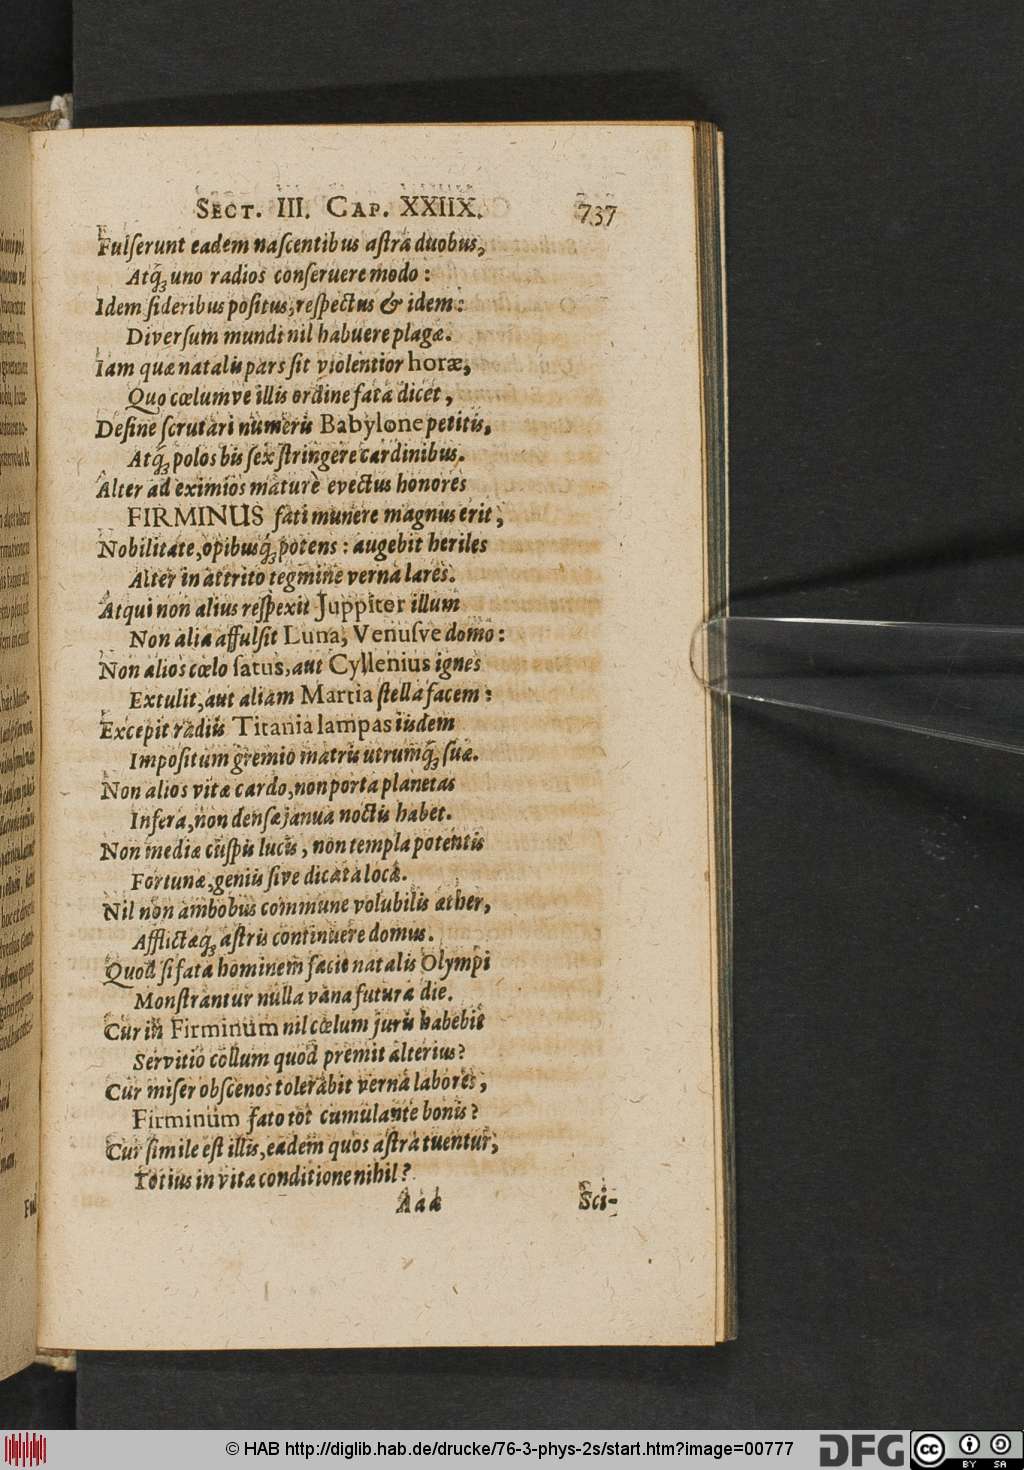 SECT. III. CAP. XXIIX. 737
Fulſerunt eadem naſcentibus aſtra duobus,
Atq́; uno radios conſeruere modo :
Idem ſideribus poſitus, reſpectus & idem :
Diverſum mundi nil habuere plagæ.
Iam quæ natalis pars ſit violentior horæ,
Quo cœlumve illis ordine fata dicet,
Deſine ſcrutari numeris Babylone petitis,
Atq́; polos bis ſex ſtringere cardinibus.
Alter ad eximios maturè evectus honores
FIRMINUS fati munere magnus erit,
Nobilitate, opibusq́; potens : augebit heriles
Alter in attrito tegmine verna lares.
Atqui non alius reſpexit Juppiter illum
Non alia affulſit Luna, Venuſve domo :
Non alios cœlo ſatus, aut Cyllenius ignes
Extulit, aut aliam Martia ſtella facem :
Excepit radiis Titania lampas iisdem
Impoſitum gremio matris utrumq́; ſuæ.
Non alios vitæ cardo, non porta planetas
Infera, non denſæ janua noctis habet.
Non mediæ cuſpis lucis, non templa potentis
Fortunæ, geniis ſive dicata loca.
Nil non ambobus commune volubilis æther,
Afflictæq́; aſtris continuere domus.
Quod ſi fata hominem facit natalis Olympi
Monſtrantur nulla vana futura die.
Cur in Firminum nil cœlum juris habebit
Servitio collum quod premit alterius?
Cur miſer obſcenos tolerabit verna labores,
Firminum fato tot cumulante bonis?
Cur ſimile eſt illis, eadem quos aſtra tuentur,
Totius in vitæ conditione nihil?
Aaa Sci-
© HAB http://diglib.hab.de/drucke/76-3-phys-2s/start.htm?image=00777
DFG
cc
BY SA